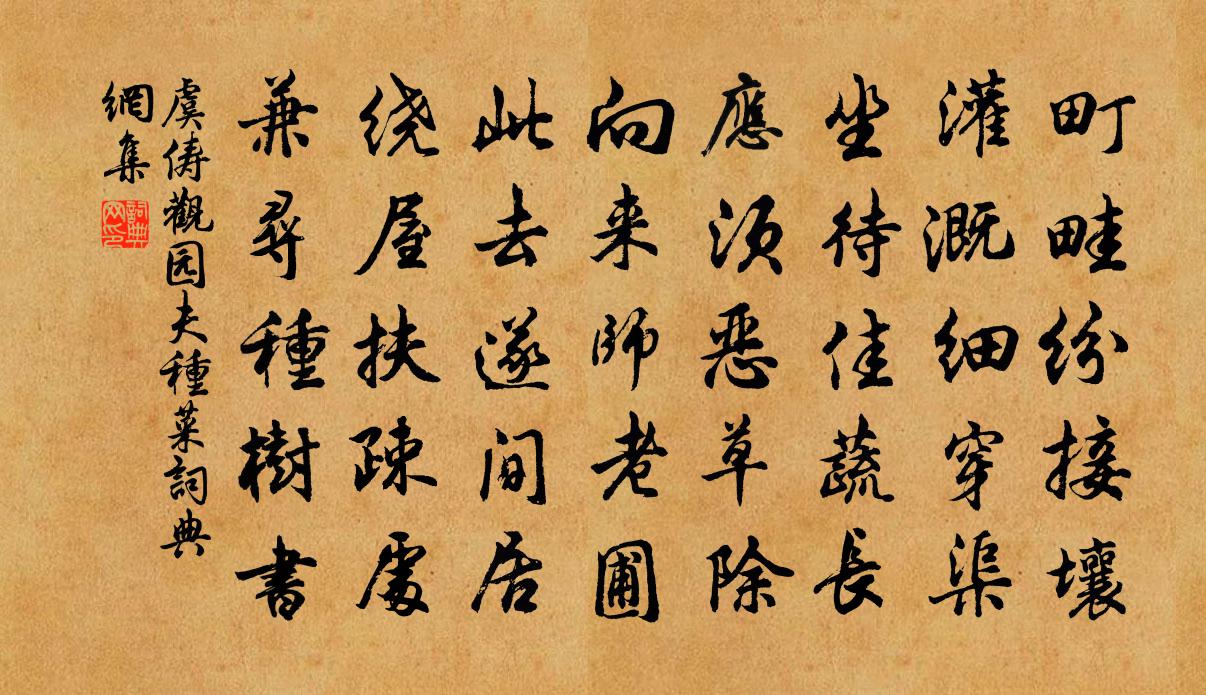 町畦纷接壤
灌溉细穿渠
坐待佳蔬長
應须惡草除
向来師老圃
此去遂间居
绕屋扶疎處
兼尋種樹書
虞俦觀园夫種菜詞典
網集
詞典网印